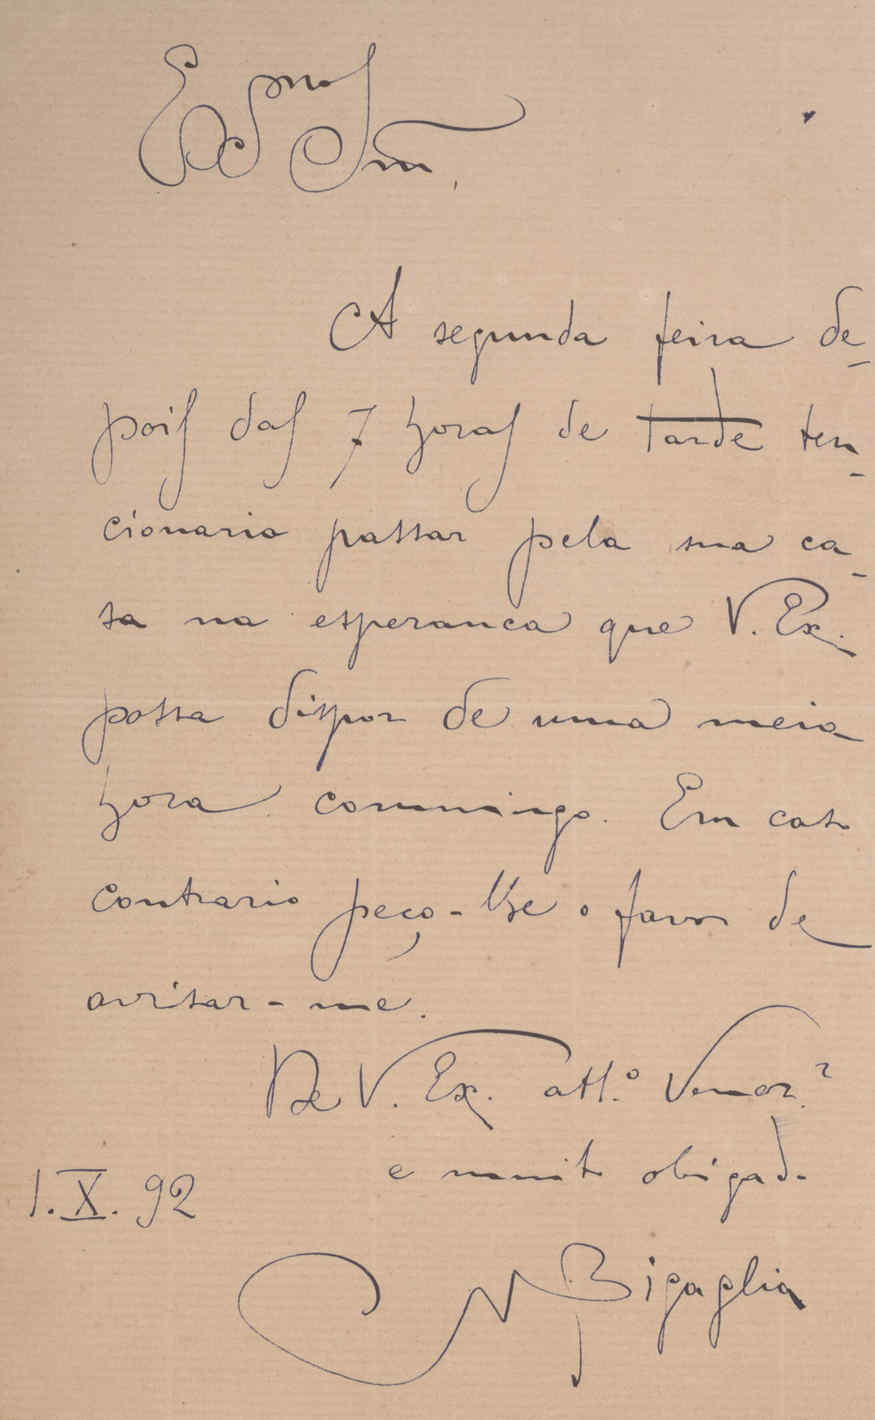 Exmo Snr.
A segunda feira de-
pois das 7 horas de tarde ten-
cionaria passar pela sua ca-
sa na esperanca que V. Ex.
possa dispor de uma meia
hora commingo. Em caso
contrario peço-lhe o favor de
avisar-me.
De V. Ex. att.º Venor.
e muito obrigado
1. X. 92
N Bigaglia